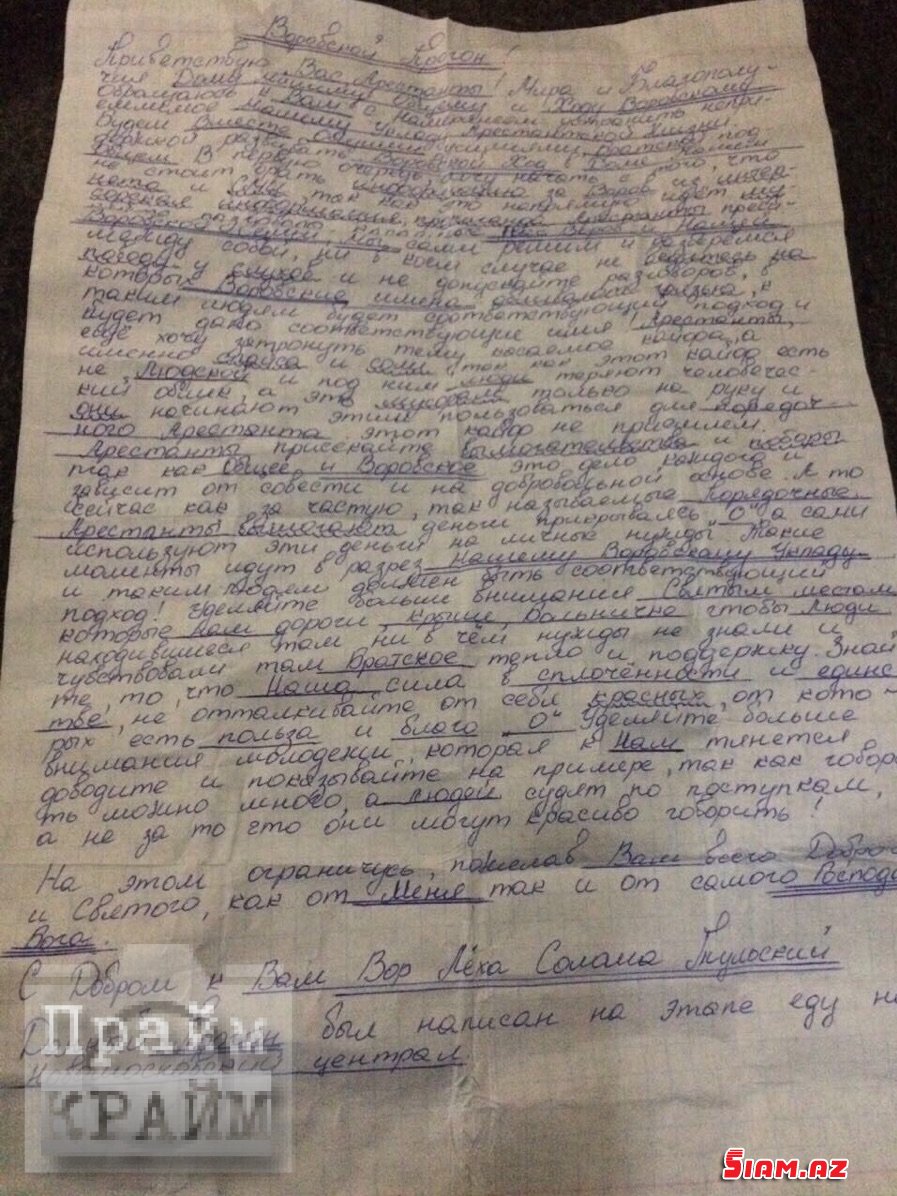 Воровской Прогон!
Приветствую Вас Арестанты! Мира и Благополу-
чия Дому нашему Общему и Ходу Воровскому.
Обращаюсь к Вам с намерением устранить непри-
емлемое нашему Укладу Арестантской Жизни.
Будем Вместе общими усилиями братской под-
держкой развивать Воровской Ход в Доме Нашем
Общем. В первую очередь хочу начать с того, что
не стоит брать информацию за Воров из интер-
нета и СМИ, так как это напрямую идёт му-
сорская информация,
Воровское
Воровской сами решим и разберёмся
между собой, ни в коем случае не ведитесь на
поводу у слухов и не допускайте разговоров, в
которых Воровские имена к
таким людям будет соответствующий подход и
будет дано соответствующие имя! Арестанты,
ещё хочу затронуть тему касаемое кайфа, а
именно спайса и соли, так как этот кайф есть
не Людской и под ним люди теряют человечес-
кий облик, а это мусорам только на руку и
они начинают этим пользоваться для порядоч-
ного Арестанта этот кайф не приемлем.
Арестанты присекайте вымогательства и поборы
так как Общее и Воровское это дело каждого и
зависит от совести и на добровольной основе. А то
сейчас как за частую, так называемые Порядочные,
Арестанты вымогают деньги прикрываясь „О" а сами
используют эти деньги на личные нужды. Такие
моменты идут в разрез Нашему Воровскому Укладу
и таким людям должен быть соответствующий
подход! Уделяйте больше внимания Святым местам
которые Нам дороги, Крыше, Больничке чтобы Люди
находившиеся там ни в чём нужды не знали и
чувствовали там Братское тепло и поддержку. Знай
те, то, что Наша сила в сплочённости и единс
тве, не отталкивайте от себя красных, от кото-
рых есть польза и благо „О" Уделяйте больше
внимания молодежи, которая к Нам тянется
доводите и показывайте на примере, так как говор
ть можно много, а людей судят по поступкам,
а не за то что они могут красиво говорить!
На этом ограничусь, пожелав Вам всего Доброго
и Святого, как от Меня так и от самого Господа
Бога.
С Добром к Вам Вор Лёха Солома Тульский
Данный прогон был написан на этапе еду на
Новомосковский централ.
Прайм
КРАЙМ
SIAM.AZ